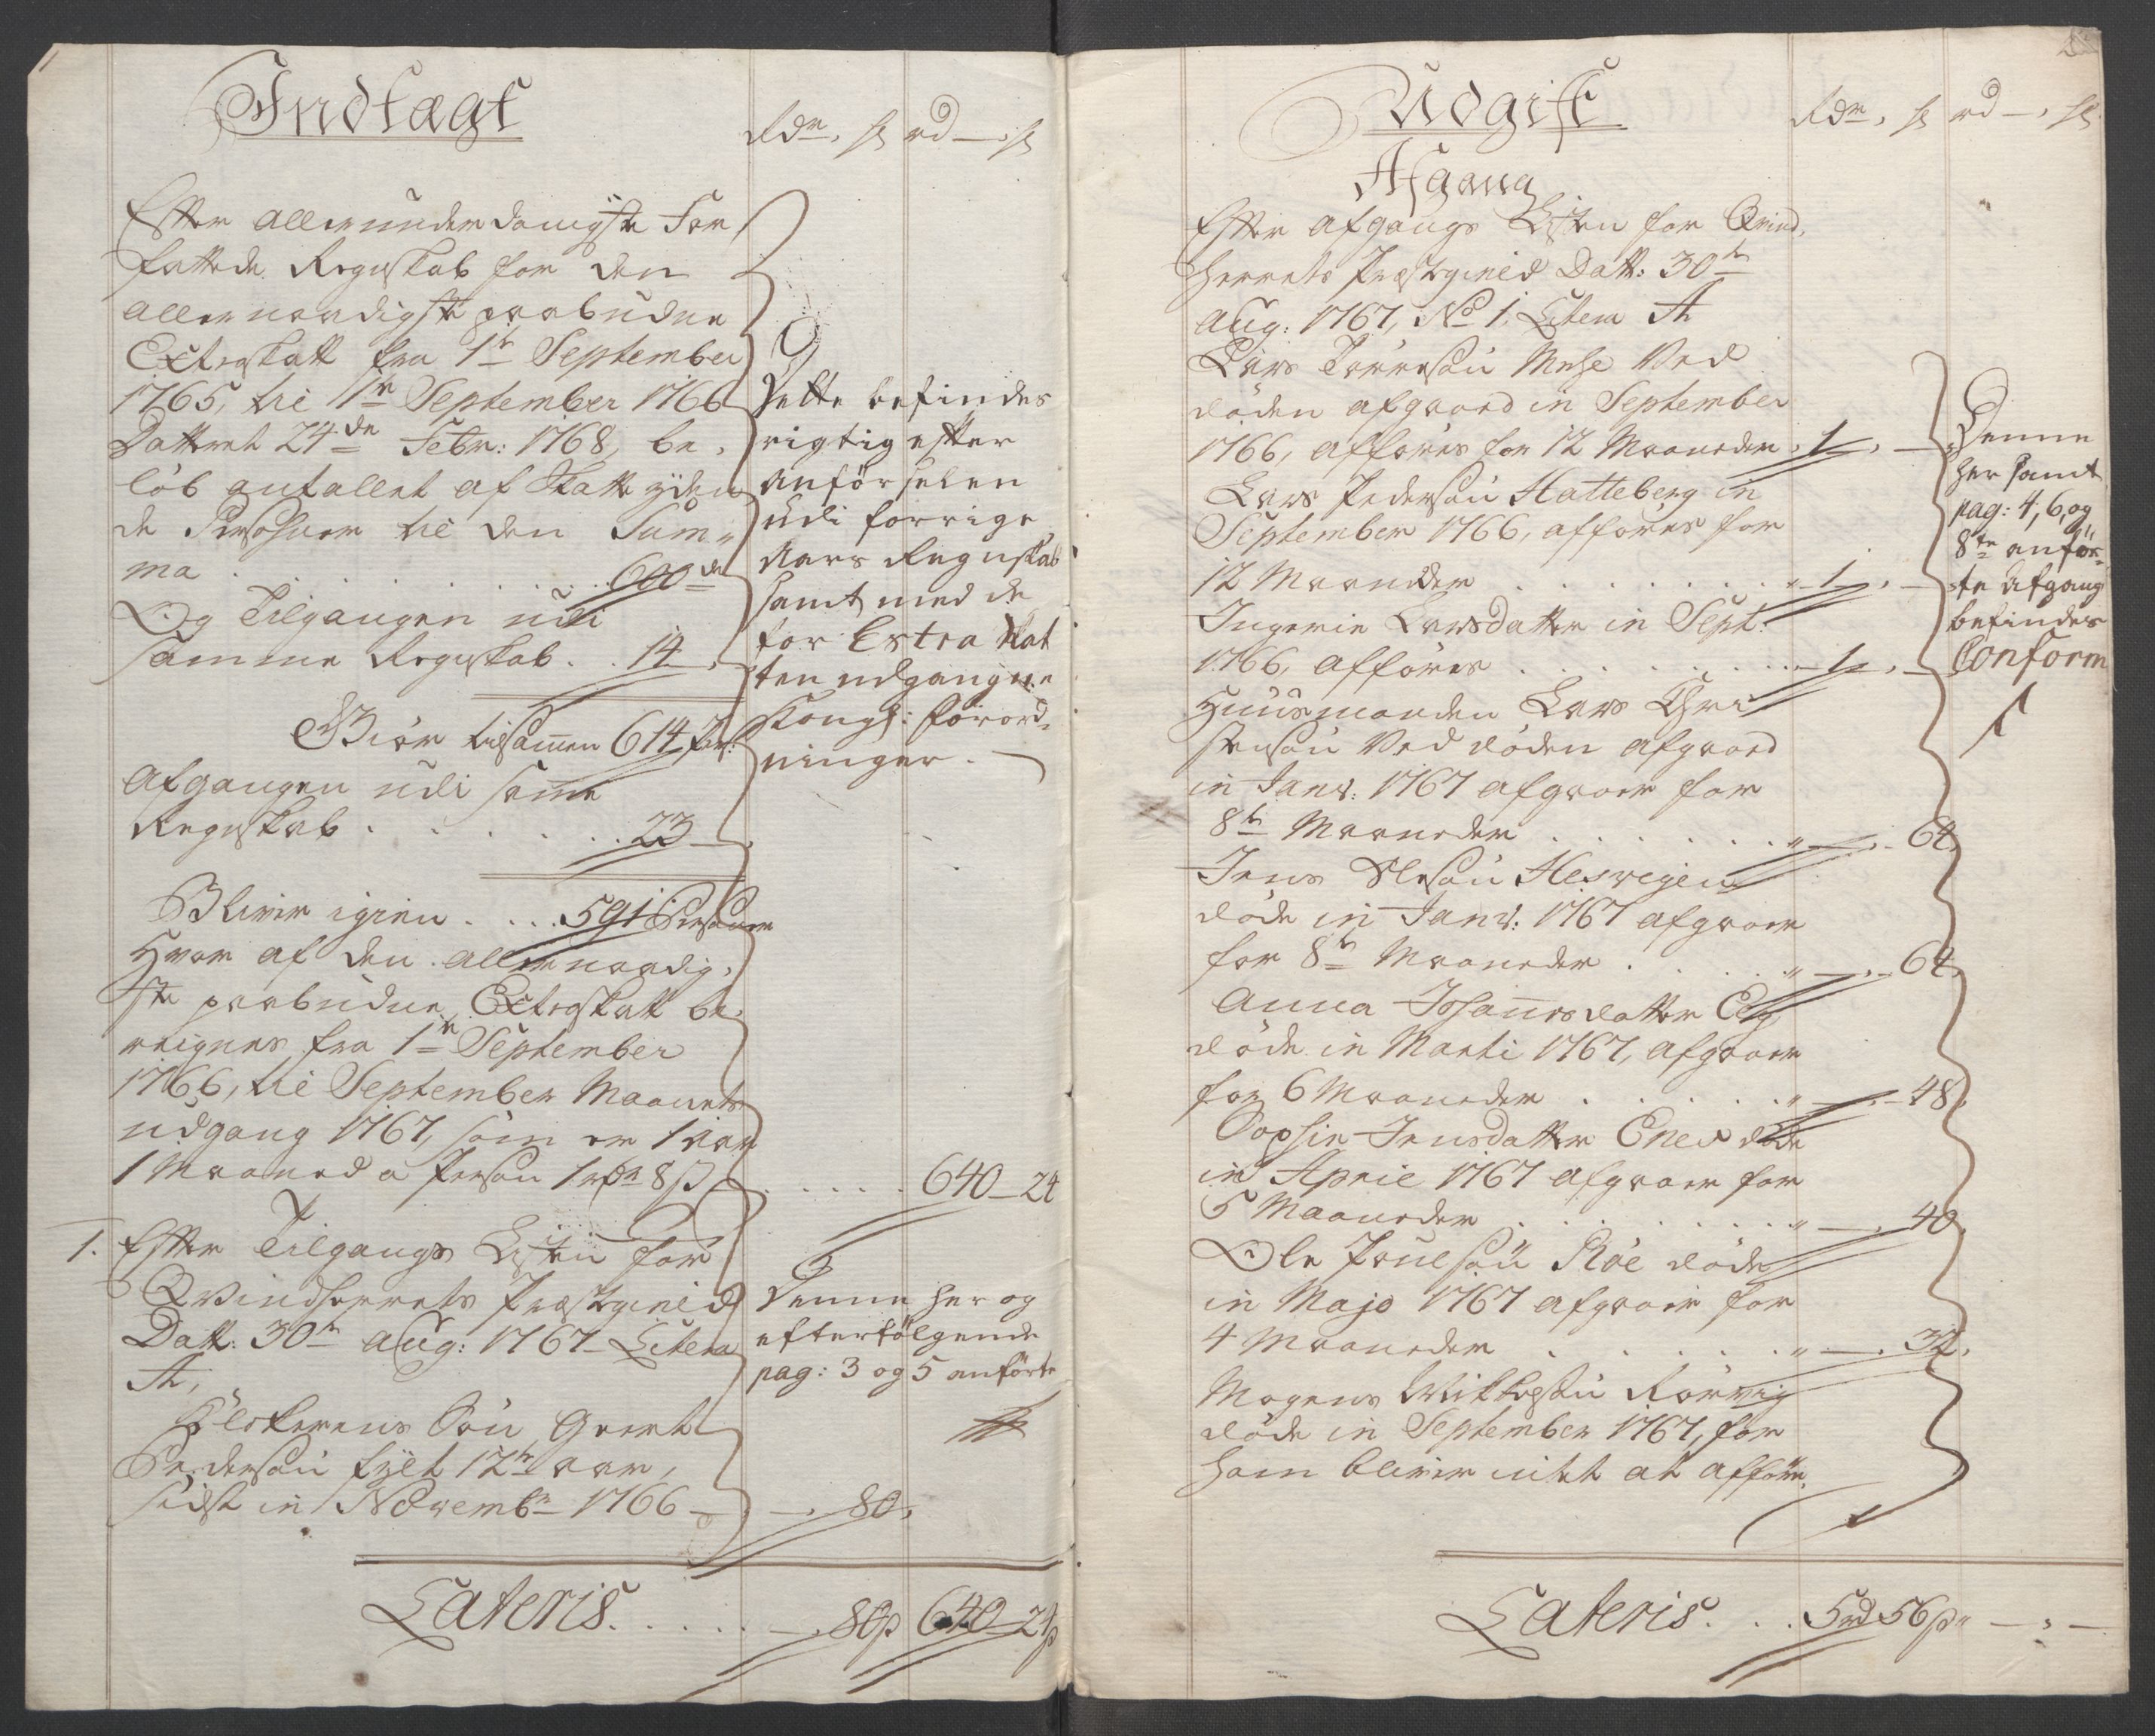 1
Indtægt
Rdr. ß rd — ß
Efter allerunderdanigste For
fattede Regnskab for den
allernaadigste paabudne
Extraskatt fra 1te September
1765, til 1te September 1766
Datteret 24de Febr: 1768, be-
løb antallet af Skatte yden
de Persohner til den Sum-
ma . . . . . . 600de
Og Tilgangen udi
samme Regnskab . . 14
Giør tilsamen 614 Pers:
Afgangen udi same
Regnskab . . . . . . 23
Bliver igien . . . . 591 Persohner
Hvor af den allernaadig-
ste paabudne Extraskatt be-
reignes fra 1te September
1766, til September Maaneds
udgang 1767, som er 1 aar
1 Maaned a Person 1 rdr 8 ß . . . . . 640 – 24
Dette befindes
rigtig efter
anförselen
udi forrige
Aars Regnskab
samt med de
for Extra Skat
ten udgangne
Kongl: Forord-
ninger. —
1. Efter Tilgangs Listen for
Qvindherrets Præstegield
Datt: 30te Aug: 1767 Litera
A,
Klokerens Søn Geert
Pedersøn fyldt 12te aar,
sidst in Novembr 1766 — — 80,
Denne her og
efterfölgende
pag: 3 og 5 anförte
Lateris . . . . . — 80ß 640 – 24ß
Udgift
Rdr. ß rd — ß
Afgang
Efter afgangs Listen for Qvind-
herrets Præstegield Datt: 30te
Aug: 1767, No 1. Litera A
Lars Tørresøn Mehe Ved
døden afgaaed in September
1766, afføres for 12 Maaneder . 1 , —
Lars Pedersøn Hatteberg in
September 1766, afføres for
12 Maaneder . . . . . . . . 1 , —
Ingerie Larsdatter in Sept:
1766, afføres . . . . . . . . 1 , —
Huusmanden Lars Chri
stensøn Ved døden afgaaed
in Janv: 1767 afgaaer for
8te Maaneder . . . . . . . „ — 64,
Jens Olesøn Hesvigen
døde in Janv: 1767 afgaaer
for 8te Maaneder . . . . . „ — 64,
Anna Johannesdatter
døde in Marti 1767, afgaaer
for 6 Maaneder . . . . . . „ — 48,
Sophie Jensdatter Enes døde
in April 1767 afgaaer for
5 Maaneder . . . . . . . . „ — 40,
Ole Poulsøn Røe døde
in Majo 1767 afgaaer for
4 Maaneder . . . . . . . „ — 32,
Mogens Rørvig
døde in September 1767, for
ham bliver intet at afføre,
Denne
her samt
pag: 4, 6, og
8te anför-
te Afgang
befindes
Conform
Lateris . . . 5rd 56ß „ — , —